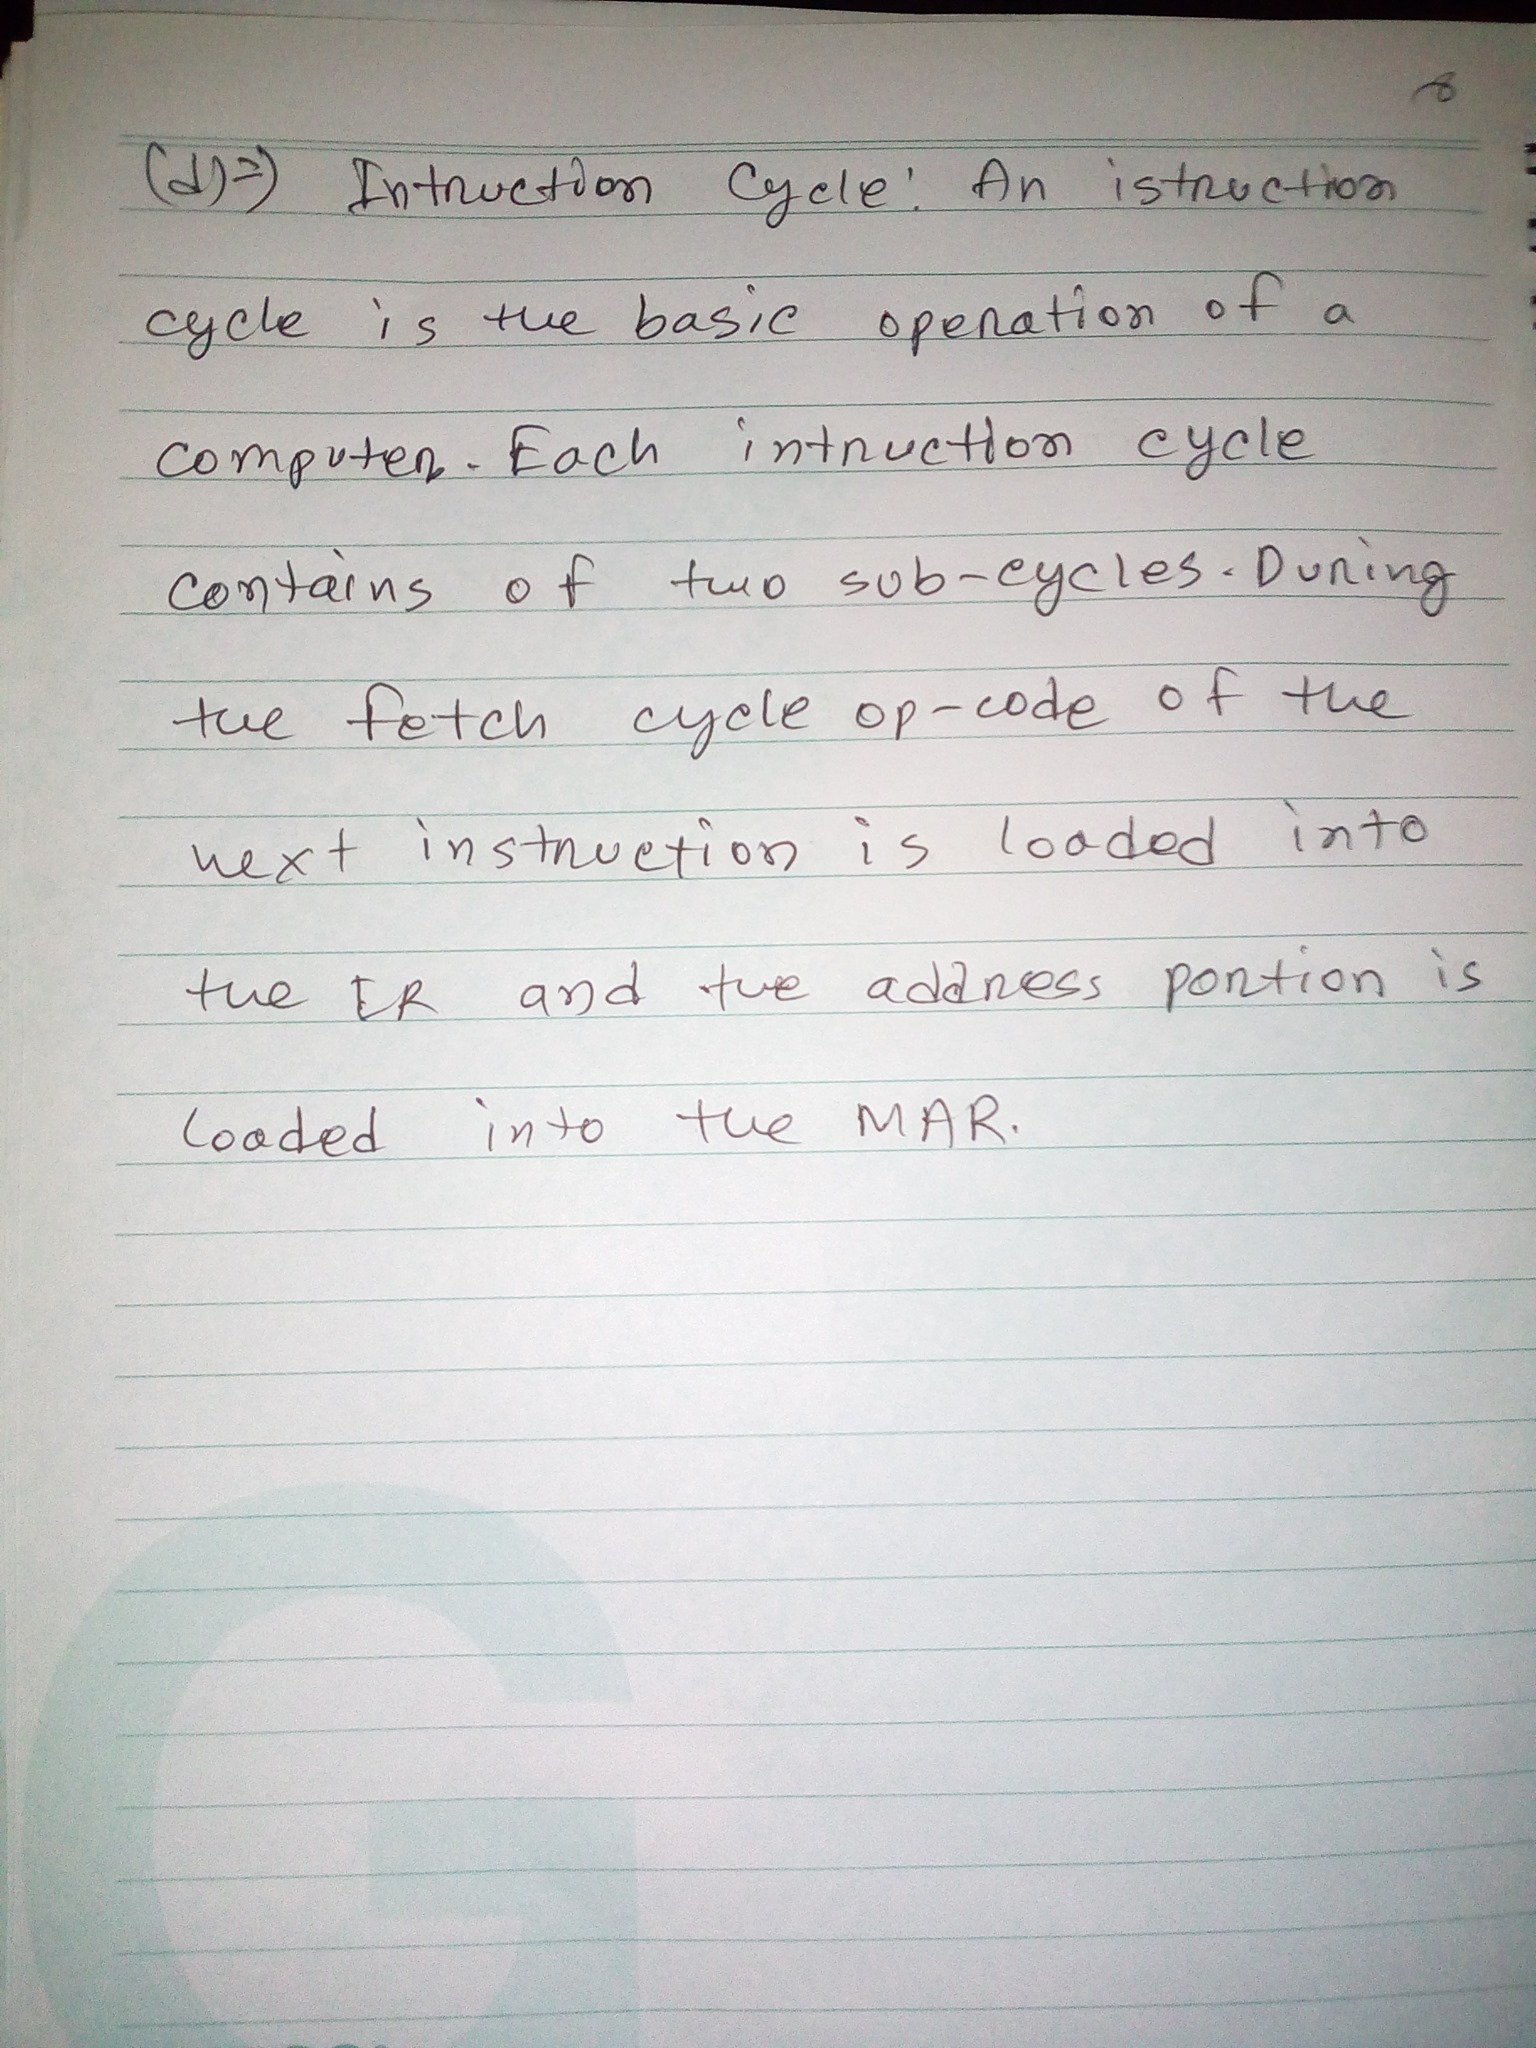 8
(d)⇒) Intruction Cycle: An istruction
cycle is the basic operation of a
computer. Each intruction cycle
contains of two sub-cycles. During
the fetch cycle op-code of the
next instruction is loaded into
the IR and the address portion is
loaded into the MAR.